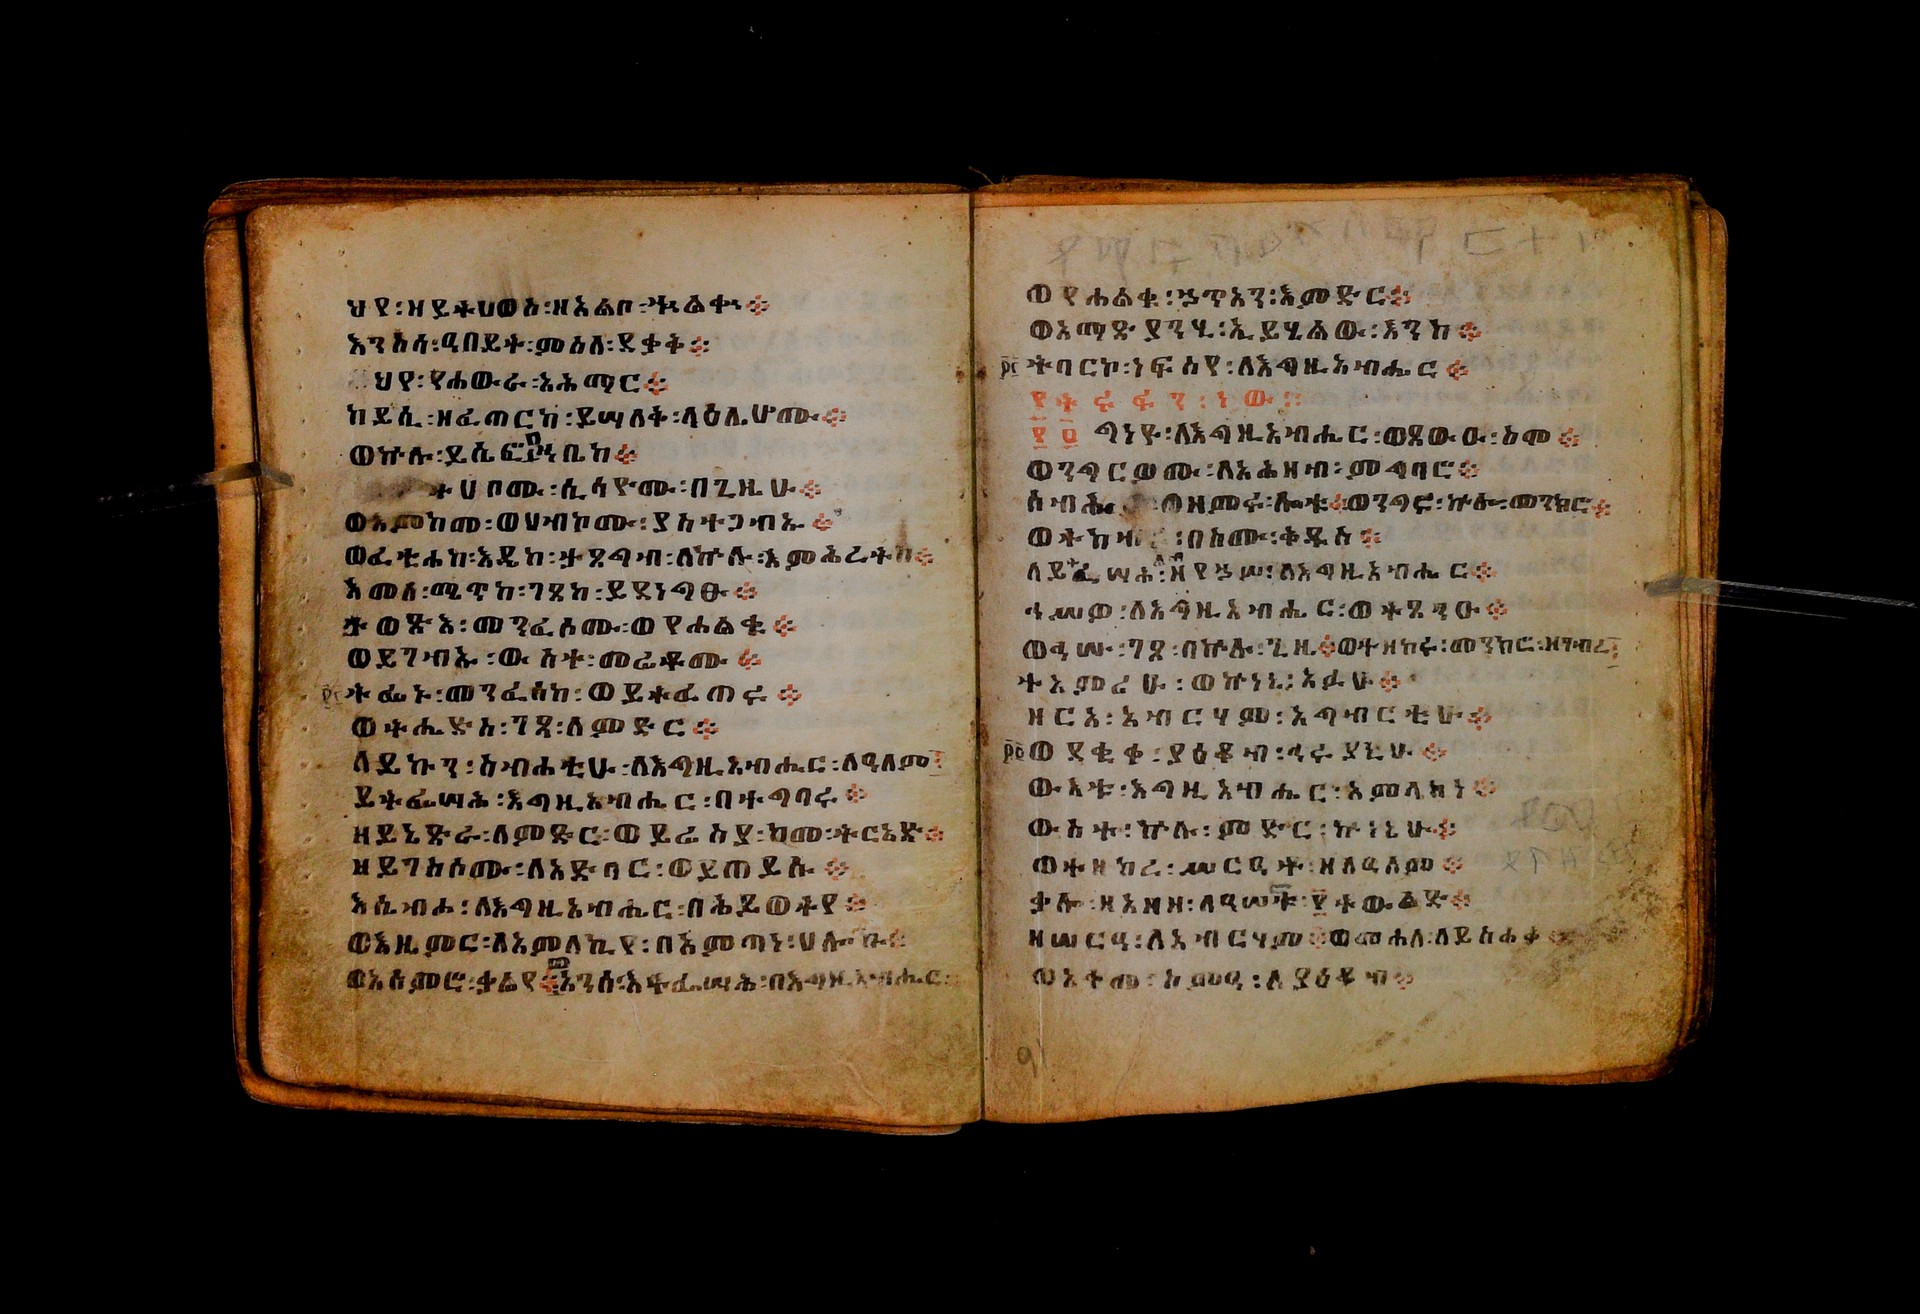 ህየ፡ዘይትሀወስ፡ዘአልቦ፡ኁልቍ፨
እንስሳ፡ዓቢይት፡ምስለ፡ደቃቅ፨
ህየ፡የሐውራ፡አሕማር፨
ከይሲ፡ዘፈጠርከ፡ይሣለቅ፡ላዕሌሆሙ፨
ወኵሉ፡ይሴፎ፡ኀቤከ፨
ትሀቦሙ፡ሲሳዮሙ፡በጊዜሁ፨
ወእምከመ፡ወሀብኮሙ፡ያስተጋብኡ፨
ወፈቲሐከ፡እዴከ፡ታጸግብ፡ለኵሉ፡እምሕረትከ፨
እመሰ፡ሜጥከ፡ገጸከ፡ይደነግፁ፨
ታወጽእ፡መንፈሶሙ፡ወየሐልቁ፨
ወይገብኡ፡ውስተ፡መሬቶሙ፨
ትፌኑ፡መንፈሰከ፡ወይትፈጠሩ፨
ወትሔድስ፡ገጸ፡ለምድር፨
ለይኩን፡ስብሐቲሁ፡ለእግዚአብሔር፡ለዓለም፨
ይትፌሣሕ፡እግዚአብሔር፡በተግባሩ፨
ዘይኔጽራ፡ለምድር፡ወይሬስያ፡ከመ፡ትርዐድ፨
ዘይገሰሶሙ፡ለአድባር፡ወይጠይሱ፨
እሴብሖ፡ለእግዚአብሔር፡በሕይወትየ፨
ወእዜምር፡ለአምላኪየ፡በአምጣነ፡ሀሎኩ፨
ወአሰምሮ፡ቃልየ፨አንሰ፡እትፌሣሕ፡በእግዚአብሔር፨
ወየሐልቁ፡ኃጥአን፡እምድር፨
ወአማፅያንሂ፡ኢይሄልው፡እንከ፨
ትባርኮ፡ነፍስየ፡ለእግዚአብሔር፨
የትሩፋን፡ነው፨
፻፬ ግነዩ፡ለእግዚአብሔር፡ወጸውዑ፡ስሞ፨
ወንግርዎሙ፡ለአሕዛብ፡ምግባሮ፨
ሰብሑ፡ወዘምሩ፡ሎቱ፨ወንግሩ፡ኵሎ፡መንክሮ፨
ወትከብሩ፡በስሙ፡ቅዱስ፨
ለይትፌሣሕ፡ዘየኀሦ፡ለእግዚአብሔር፨
ኅሥዎ፡ለእግዚአብሔር፡ወትጸንዑ፨
ወኅሡ፡ገጸ፡በኵሉ፡ጊዜ፨ወተዘከሩ፡መንክሮ፡ዘገብረ፨
ተአምሪሁ፡ወኵነኔ፡አፉሁ፨
ዘርአ፡አብርሃም፡አግብርቲሁ፨
ወደቂቀ፡ያዕቆብ፡ኅሩያኒሁ፨
ውእቱ፡እግዚአብሔር፡አምላክነ፨
ውስተ፡ኵሉ፡ምድር፡ኵነኔሁ፨
ወተዘከረ፡ሥርዓቶ፡ዘለዓለም፨
ቃሎ፡ዘአዘዘ፡ለዓሠርቱ፡፻ትውልድ፨
ዘሠርዓ፡ለአብርሃም፨ወመሐለ፡ለይስሐቅ፨
ወአቀመ፡ስምዓ፡ለያዕቆብ፨